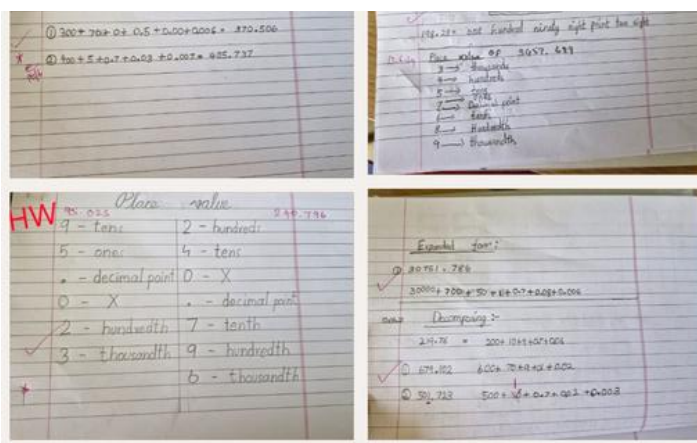 ① 300+ 70+ 0+ 0.5 + 0.00+0.006 = 370.506
② 400 + 5 + 0.7 + 0.03 + 0.007 = 405.737
198.28 = one hundred ninety eight point two eight
Place value of 3457.689
3 → thousands
4 → hundreds
5 → tens
7 → ones
. → Decimal point
6 → tenth
8 → Hundredth
9 → thousandth
HW
Place value
95.023
240.796
9 - tens
5 - ones
. - decimal point
0 - X
2 - hundredth
3 - thousandth
2 - hundreds
4 - tens
0 - X
. - decimal point
7 - tenth
9 - hundredth
6 - thousandth
Expanded form:
① 30751.786
30000+ 700 + 50 + 1 + 0.7 + 0.08 + 0.006
Decomposing :-
① 679.102
② 501.723